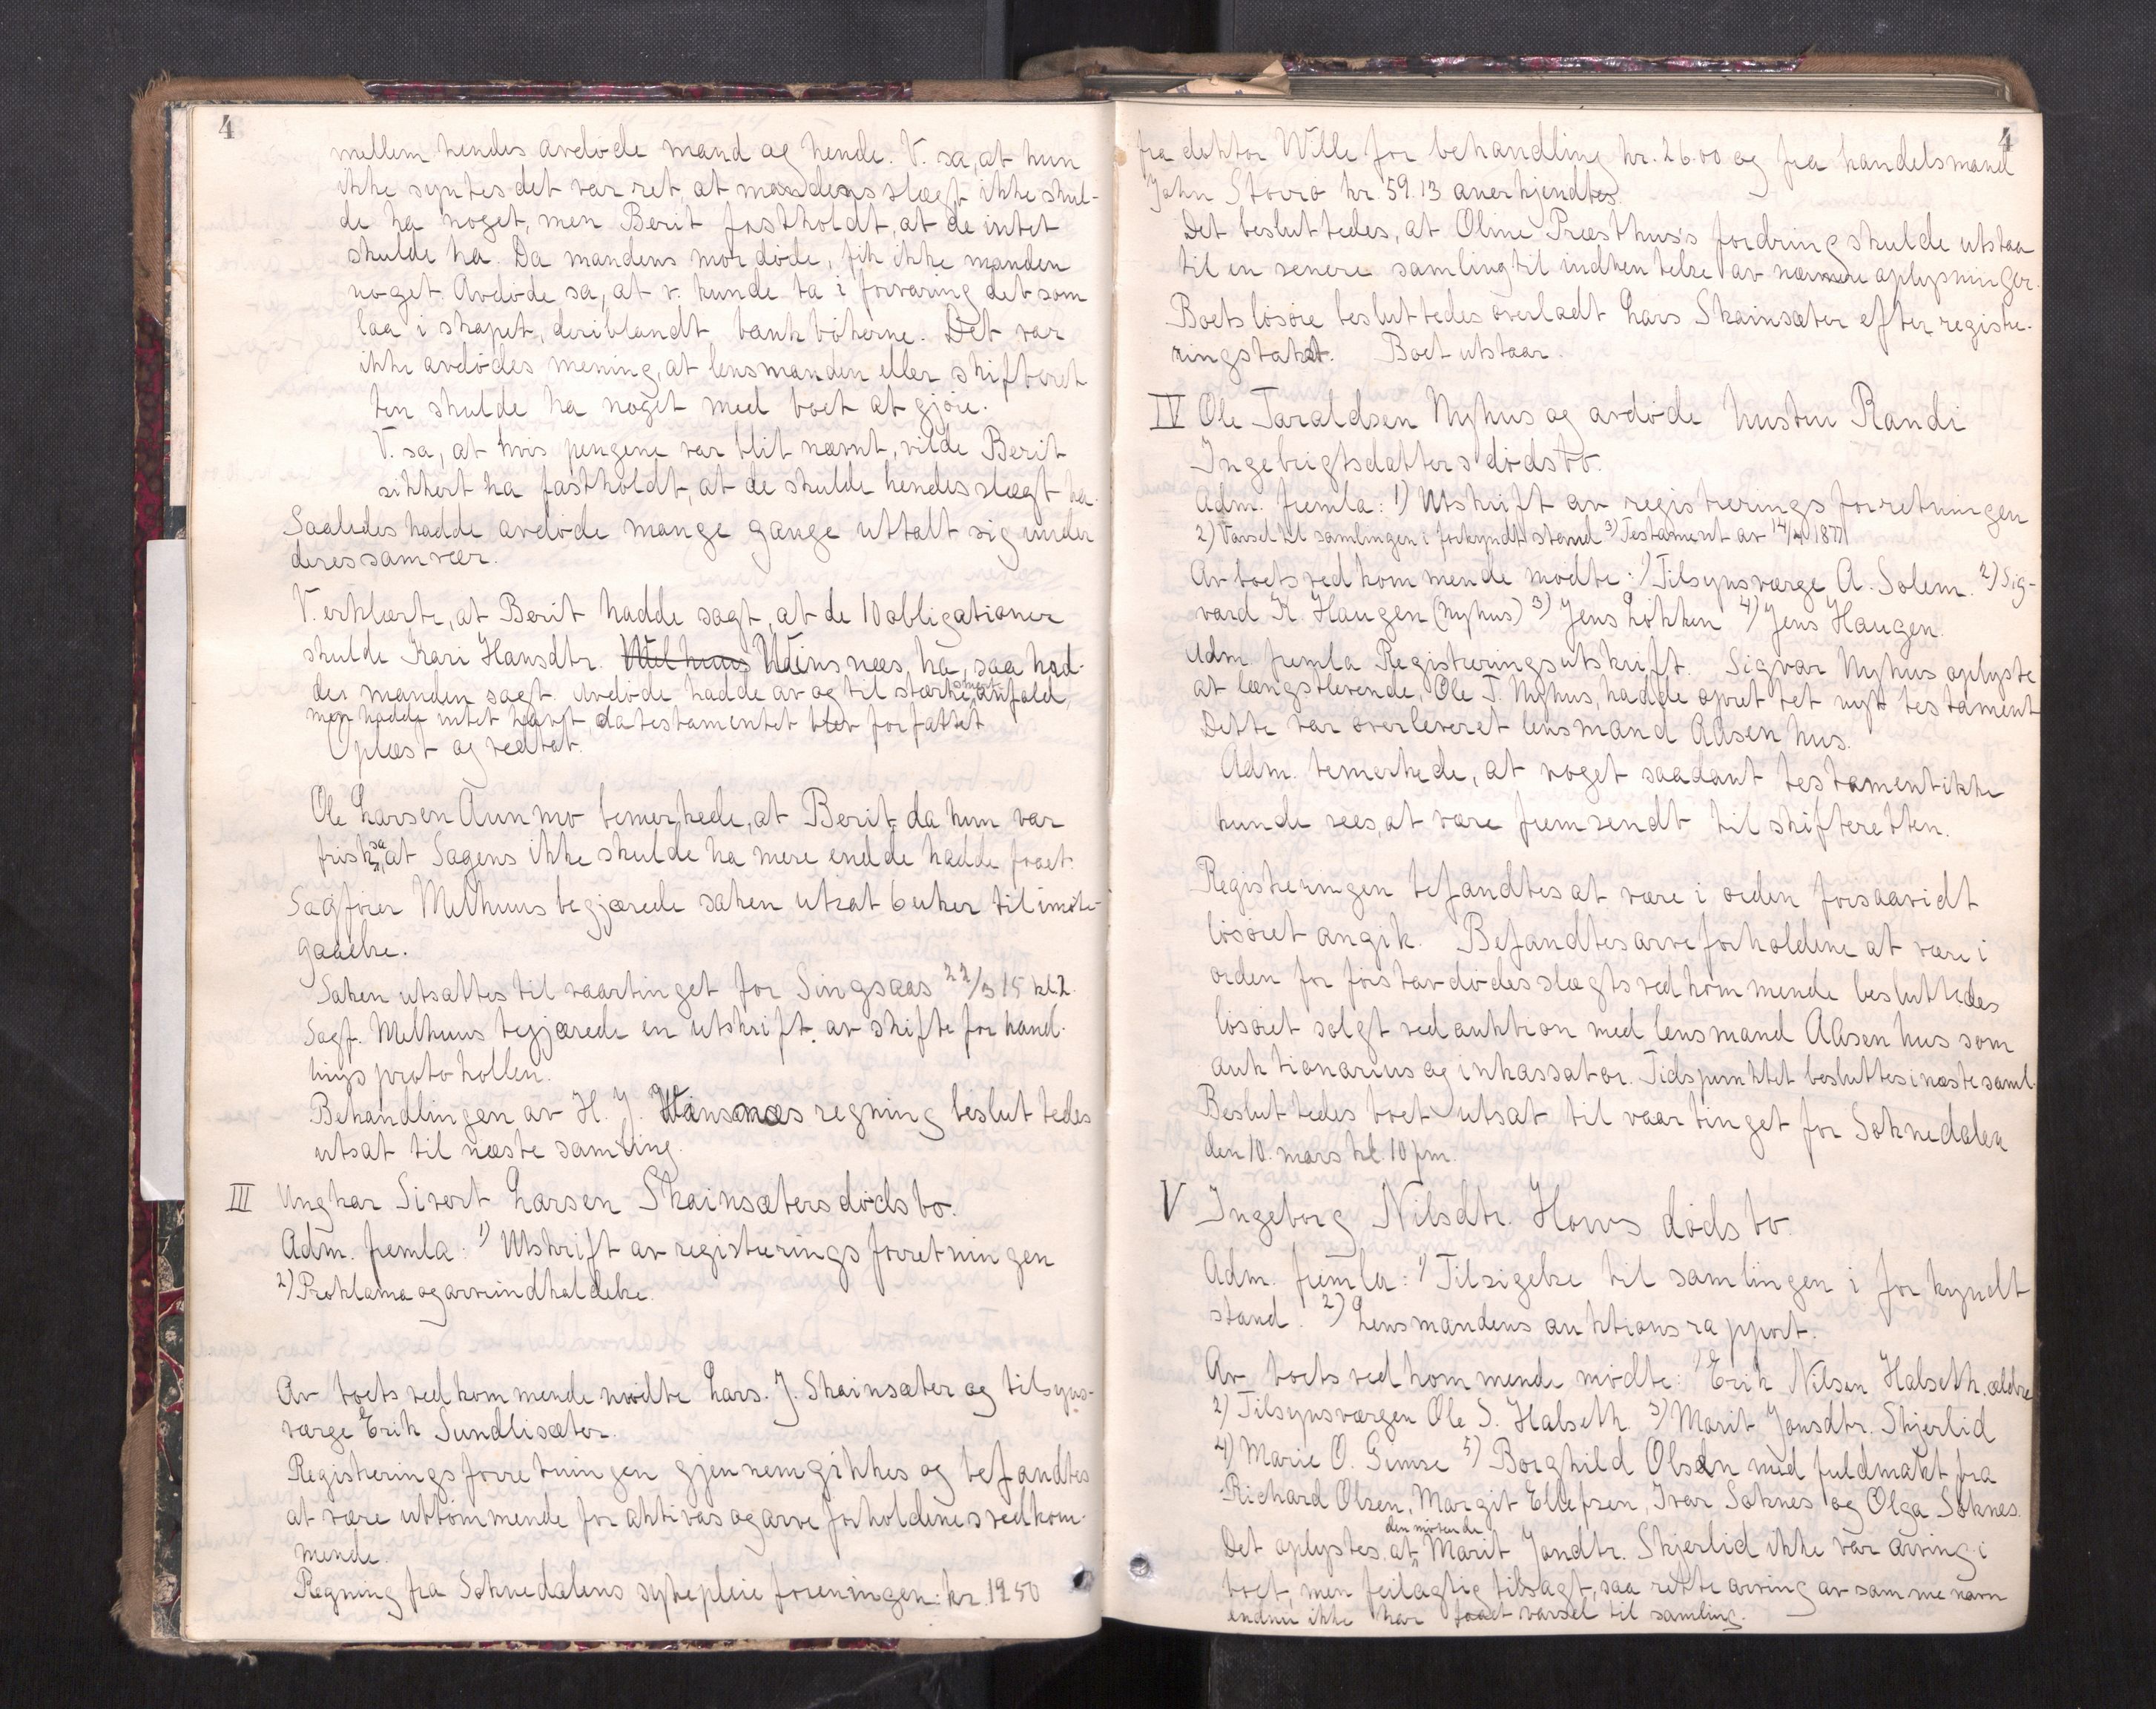 4
mellem hendes avdøde mand og hende. V. sa, at hun
ikke syntes det var ret, at mandens slægt ikke skul-
de ha noget, men Berit fastholdt, at de intet
skulde ha. Da mandens mor døde, fik ikke manden
noget. Avdøde sa, at v. kunde ta i forvaring det som
laa i skapet, deriblandt bankbøkerne. Det var
ikke avdødes mening, at lensmanden eller skifteret
ten skulde ha noget med boet at gjøre.
V. sa, at hvis pengene var blit nævnt, vilde Berit
sikkert ha fastholdt, at de skulde hendes slægt ha.
Saaledes hadde avdøde mange gange uttalt sig under
deres samvær.
V. erklærte, at Berit hadde sagt, at de 10 obligationer
skulde Kari Hansdtr. Melhuus Winsnes ha, saa had-
de manden sagt. Avdøde hadde av og til stærke smert anfald,
men hadde intet havt, da testamentet blev forfattet
Oplæst og vedtat.
Ole Larsen Aunmo bemerkede, at Berit, da hun var
frisk, sa at Sagens ikke skulde ha mere end de hadde faaet.
Sagfører Melhuus begjærede saken utsat 6 uker til imøte-
gaaelse.
Saken utsattes til vaartinget for Singsaas 22/3 15 kl 2.
Sagf. Melhuus begjærede en utskrift av skifteforhand-
lingsprotokollen.
Behandlingen av H. J. Winsnæs regning besluttedes
utsat til næste samling.
III Ungkar Sivert Larsen Skainsæters dødsbo.
Adm. fremla: 1) Utskrift av registreringsforretningen
2) Proklama og arveindkaldelse.
Av boets vedkommende mødte Lars. J. Skainsæter og tilsyns-
verge Erik Sundlisæter.
Registreringsforretningen gjennemgikkes og befandtes
at være uttømmende for aktivas og arveforholdenes vedkom-
mende.
Regning fra Soknedalens sykepleieforeningen: kr. 12 50
4
fra doktor Wille for behandling kr. 26.00 og fra handelsmand
John Størø kr. 59.13 anerkjendtes.
Det besluttedes, at Oline Præsthus's fordring skulde utstaa
til en senere samling til indhentelse av nærmere oplysninger.
Boets løsøre besluttedes overladt Lars Skainsæter efter registre-
ringstakst. Boet utstaar.
IV Ole Taraldsen Nyhus og avdøde hustru Randi
Ingebrigtsdatters dødsbo.
Adm. fremla: 1) Utskrift av registreringsforretningen
2) Varsel til samlingen i forkyndt stand 3) Testament av 14/4 1877
Av boets vedkommende mødte: 1) Tilsynsværge A. Solem. 2) Sig-
vard K. Haugen (Nyhus) 3) Jens Løkken 4) Jens Haugen.
Adm. fremla Registreringsutskrift. Sigvar Nyhus oplyste
at længstlevende, Ole T. Nyhus, hadde opret tet nyt testament
Dette var overleveret lensmand Aasenhus.
Adm. bemerkede, at noget saadant testament ikke
kunde sees, at være fremsendt til skifteretten.
Registreringen befandtes at være i orden forsaavidt
løsøret angik. Befandtes arveforholdene at være i
orden for førstavdødes slægts vedkommende besluttedes
løsøret solgt ved auktion med lensmand Aasenhus som
auktionarius og inkassator. Tidspunktet besluttes i næste saml.
Besluttedes boet utsat til vaartinget for Soknedalen
den 10. mars kl. 10 fm.
V Ingeborg Nilsdtr. Hovs dødsbo.
Adm. fremla: 1) Tilsigelse til samlingen i forkyndt
stand. 2) Lensmandens auktionsrapport.
Av boets vedkommende mødte: 1) Erik Nilsen Halseth. ældre
2) Tilsynsværgen Ole S. Halseth. 3) Marit Jonsdtr. Skjerlid
4) Marie O. Gimse 5) Borghild Olsen med fuldmakt fra
Richard Olsen, Margit Ellefsen, Ivar Soknes og Olga Soknes.
Det oplystes, at den møtende Marit Jondtr. Skjerlid ikke var arving i
boet, men feilagtig tilsagt, saa rette arving av samme navn
endnu ikke har faaet varsel til samling.